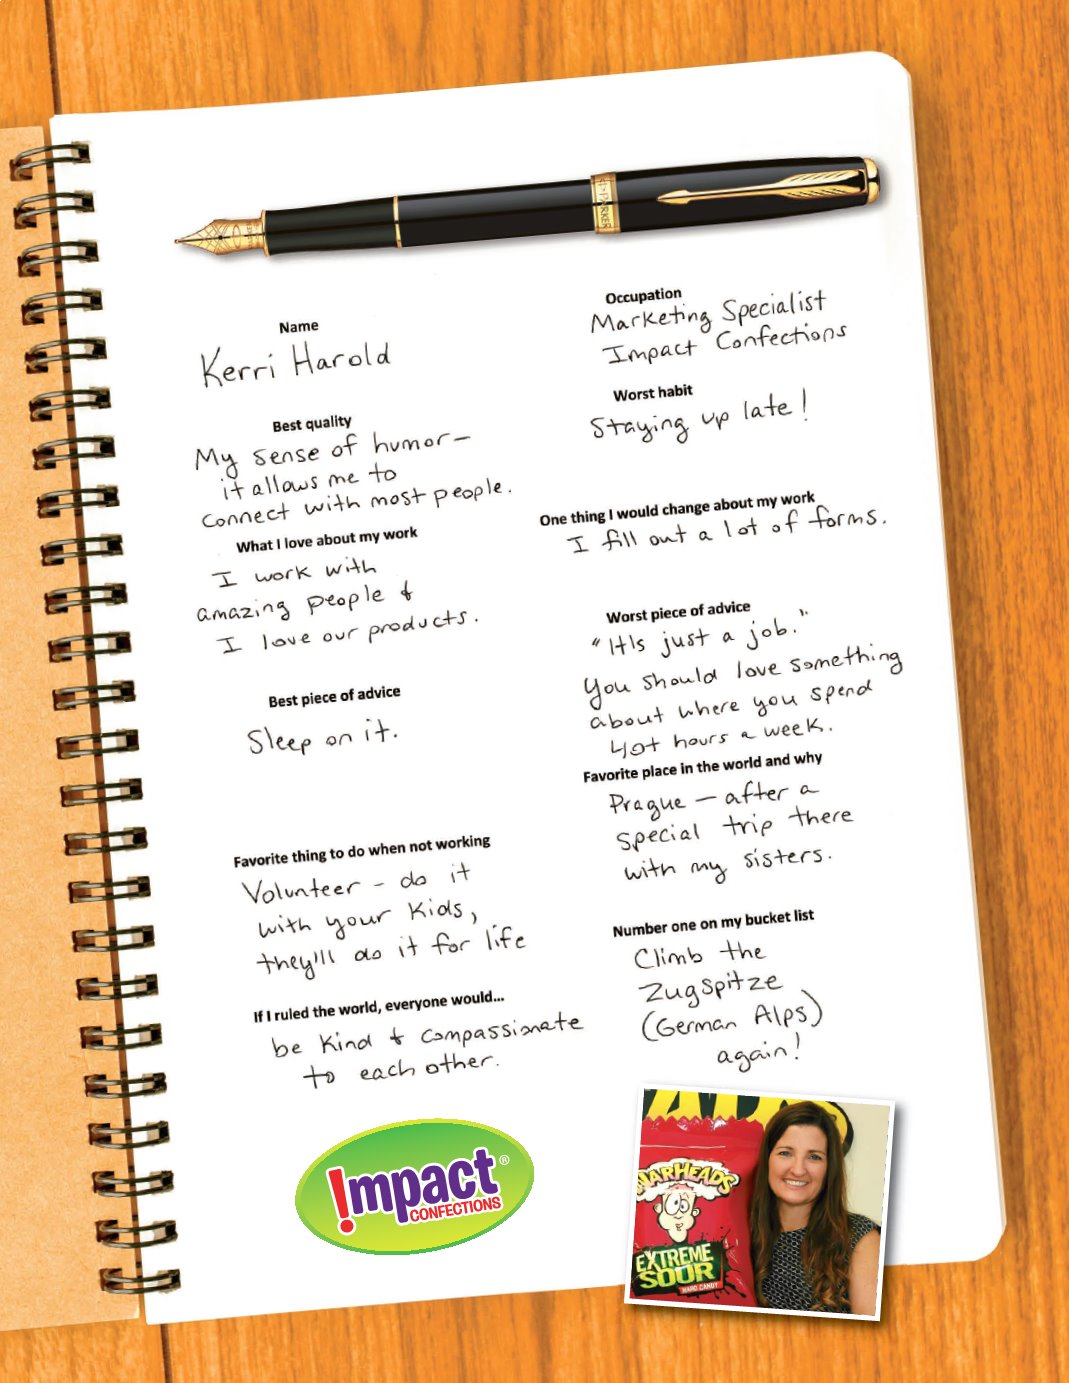 PARKER
Name
Kerri Harold
Occupation
Marketing Specialist
Impact Confections
Best quality
My sense of humor—
it allows me to
connect with most people.
Worst habit
Staying up late!
What I love about my work
I work with
amazing people &
I love our products.
One thing I would change about my work
I fill out a lot of forms.
Best piece of advice
Sleep on it.
Worst piece of advice
"It's just a job."
You should love something
about where you spend
40+ hours a week.
Favorite thing to do when not working
Volunteer – do it
with your kids,
they'll do it for life
Favorite place in the world and why
Prague – after a
special trip there
with my sisters.
If I ruled the world, everyone would...
be kind & compassionate
to each other.
Number one on my bucket list
Climb the
Zugspitze
(German Alps)
again!
!mpact®
CONFECTIONS
WARHEADS
EXTREME
SOUR
HARD CANDY